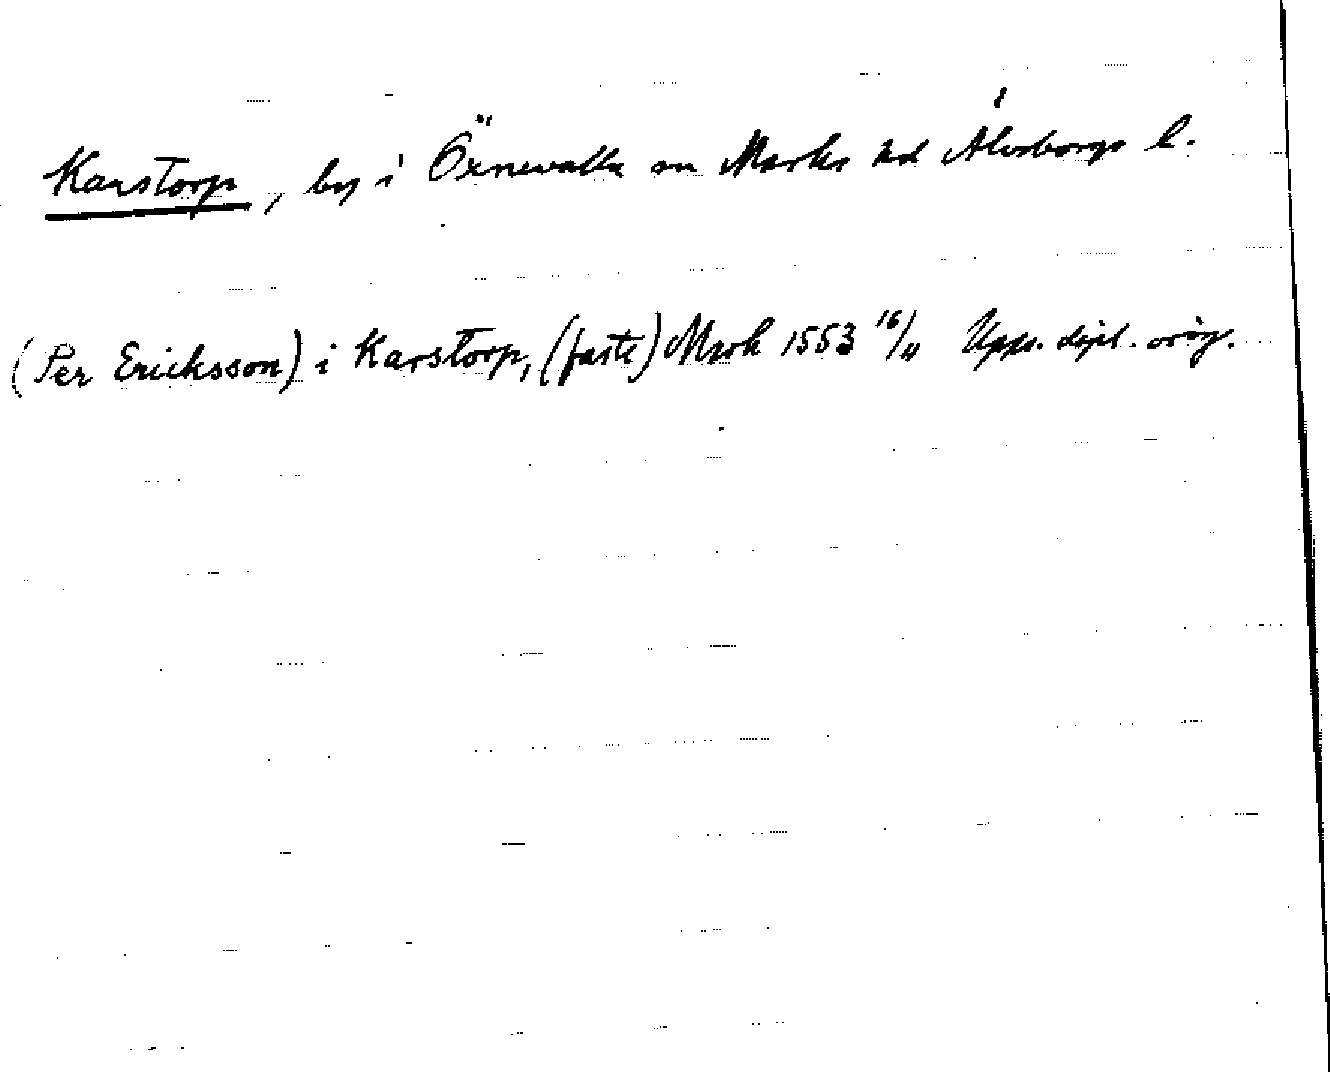 Karstorp, by i Öxnevalla sn Marks hd Älvsborgs l.
(Per Ericksson) i Karstorp, (faste) Mark 1553 16/11 Upps. dipl. orig.